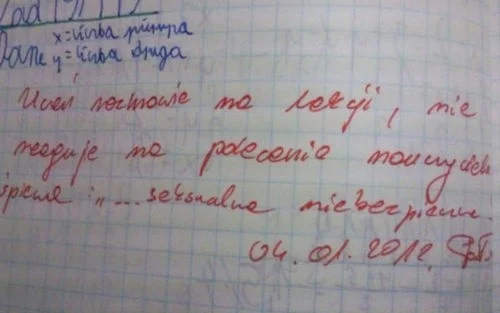 Zad
Dane x = liczba pierwsza
y = liczba druga
Uczeń rozmawia na lekcji, nie
reaguje na polecenia nauczyciela
śpiewa: „... seksualna niebezpieczna.
04.01.2012.